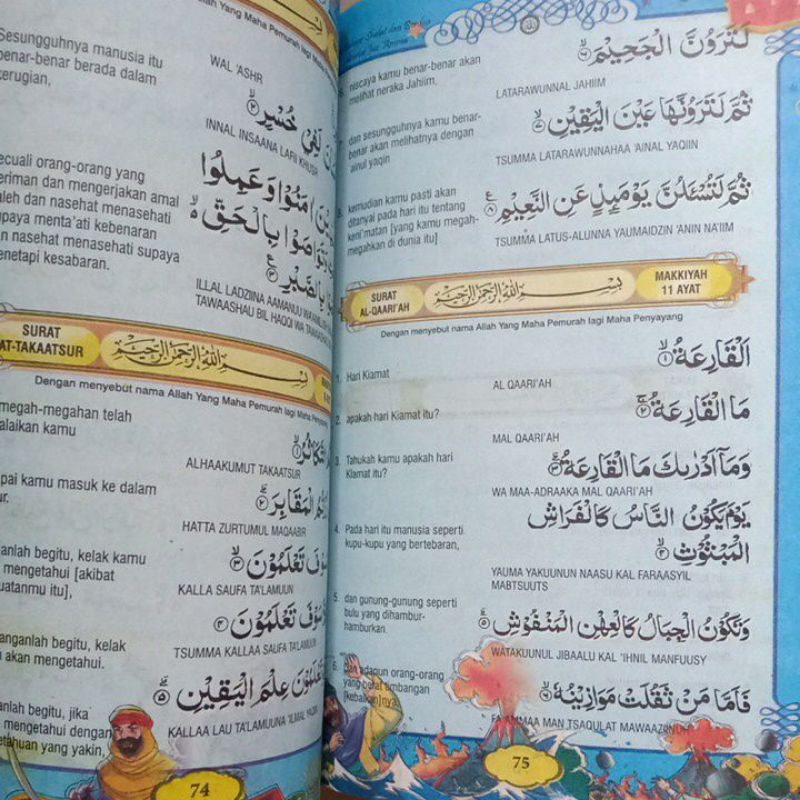 Yang Maha Pemurah lagi Maha Penyayang
Sesungguhnya manusia itu
benar-benar berada dalam
kerugian,
WAL 'ASHR
لَفِيْ خُسْرٍ ۙ٢
INNAL INSAANA LAFII KHUSR
orang-orang yang
beriman dan mengerjakan amal
dan nasehat menasehati
supaya menta'ati kebenaran
nasehat menasehati supaya
menetapi kesabaran.
اٰمَنُوْا وَعَمِلُوا
بِالْحَقِّ ۙ
بِالصَّبْرِ ٣
ILLAL LADZIINA AAMANUU
TAWAASHAU BIL HAQQI
SURAT
AT-TAKAATSUR
بِسْمِ اللهِ الرَّحْمٰنِ الرَّحِيْمِ
Dengan menyebut nama Allah Yang Maha Pemurah lagi Maha Penyayang
megah-megahan telah
kamu
ALHAAKUMUT TAKAATSUR
kamu masuk ke dalam
الْمَقَابِرَ ۗ٢
HATTA ZURTUMUL MAQAABIR
begitu, kelak kamu
mengetahui [akibat
itu],
سَوْفَ تَعْلَمُوْنَ ۙ٣
KALLA SAUFA TA'LAMUUN
begitu, kelak
akan mengetahui.
سَوْفَ تَعْلَمُوْنَ ۗ٤
TSUMMA KALLAA SAUFA TA'LAMUUN
begitu, jika
mengetahui dengan
yang yakin,
تَعْلَمُوْنَ عِلْمَ الْيَقِيْنِ ۗ٥
KALLAA LAU TA'LAMUUNA 'ILMAL YAQIIN
74
لَتَرَوُنَّ الْجَحِيْمَ ۙ٦
6. niscaya kamu benar-benar akan
melihat neraka Jahiim.
LATARAWUNNAL JAHIIM
ثُمَّ لَتَرَوُنَّهَا عَيْنَ الْيَقِيْنِ ۙ٧
7. dan sesungguhnya kamu benar-
benar akan melihatnya dengan
'ainul yaqin
TSUMMA LATARAWUNNAHAA 'AINAL YAQIIN
ثُمَّ لَتُسْـَٔلُنَّ يَوْمَىِٕذٍ عَنِ النَّعِيْمِ ٨
8. kemudian kamu pasti akan
ditanyai pada hari itu tentang
keni'matan [yang kamu megah-
megahkan di dunia itu]
TSUMMA LATUS-ALUNNA YAUMAIDZIN 'ANIN NA'IIM
SURAT
AL-QAARI'AH
بِسْمِ اللهِ الرَّحْمٰنِ الرَّحِيْمِ
MAKKIYAH
11 AYAT
Dengan menyebut nama Allah Yang Maha Pemurah lagi Maha Penyayang
اَلْقَارِعَةُ ۙ١
1. Hari Kiamat
AL QAARI'AH
مَا الْقَارِعَةُ ۚ٢
2. apakah hari Kiamat itu?
MAL QAARI'AH
وَمَآ اَدْرٰىكَ مَا الْقَارِعَةُ ۗ٣
3. Tahukah kamu apakah hari
Kiamat itu?
WA MAA-ADRAAKA MAL QAARI'AH
يَوْمَ يَكُوْنُ النَّاسُ كَالْفَرَاشِ
الْمَبْثُوْثِ ۙ٤
4. Pada hari itu manusia seperti
kupu-kupu yang bertebaran,
YAUMA YAKUUNUN NAASU KAL FARAASYIL
MABTSUUTS
وَتَكُوْنُ الْجِبَالُ كَالْعِهْنِ الْمَنْفُوْشِ ۗ٥
5. dan gunung-gunung seperti
bulu yang dihambur-
hamburkan.
WATAKUUNUL JIBAALU KAL 'IHNIL MANFUUSY
فَاَمَّا مَنْ ثَقُلَتْ مَوَازِيْنُهٗ ۙ٦
6. dan adapun orang-orang
yang berat timbangan
[kebaikan]nya,
FA AMMAA MAN TSAQULAT MAWAAZIINUH
75